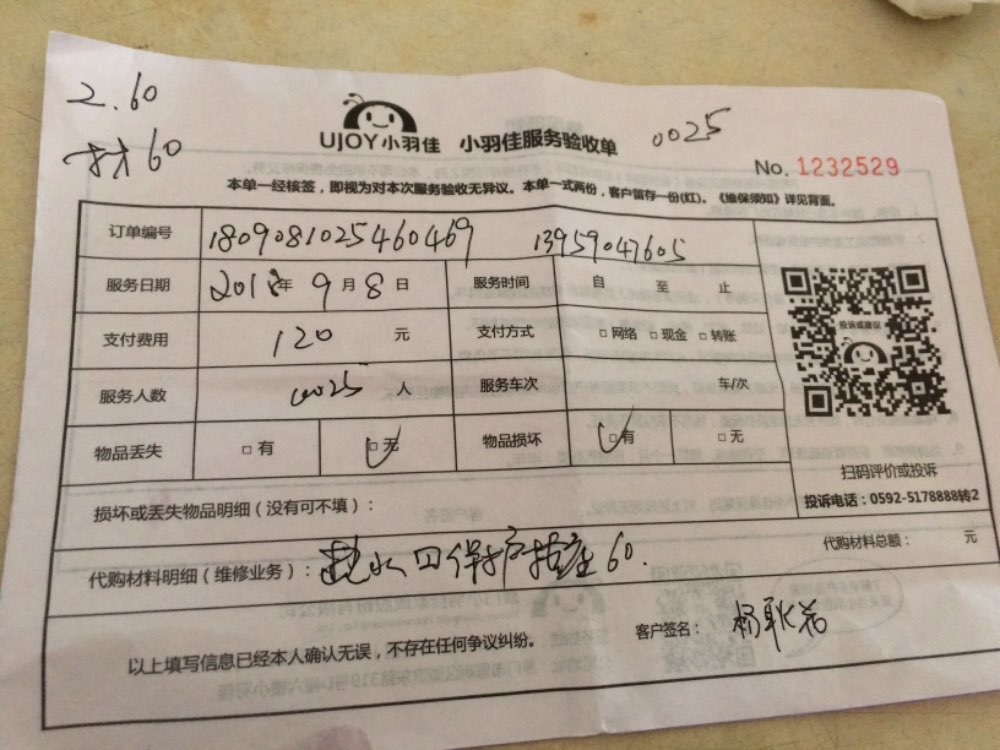 2.60
材60
UJOY小羽佳 小羽佳服务验收单 0025
No. 1232529
本单一经核签，即视为对本次服务验收无异议。本单一式两份，客户留存一份(红)。《维保须知》详见背面。
订单编号 1809081025460469 13959047605
服务日期 2018年 9月8日 服务时间 自 至 止
支付费用 120 元 支付方式 □网络 □现金 □转账
服务人数 0025 人 服务车次 车/次
物品丢失 □有 □无 物品损坏 □有 □无
投诉或建议
扫码评价或投诉
投诉电话：0592-5178888转2
损坏或丢失物品明细（没有可不填）：
代购材料总额： 元
代购材料明细（维修业务）： 水口保护插座60.
客户签名： 杨
以上填写信息已经本人确认无误，不存在任何争议纠纷。